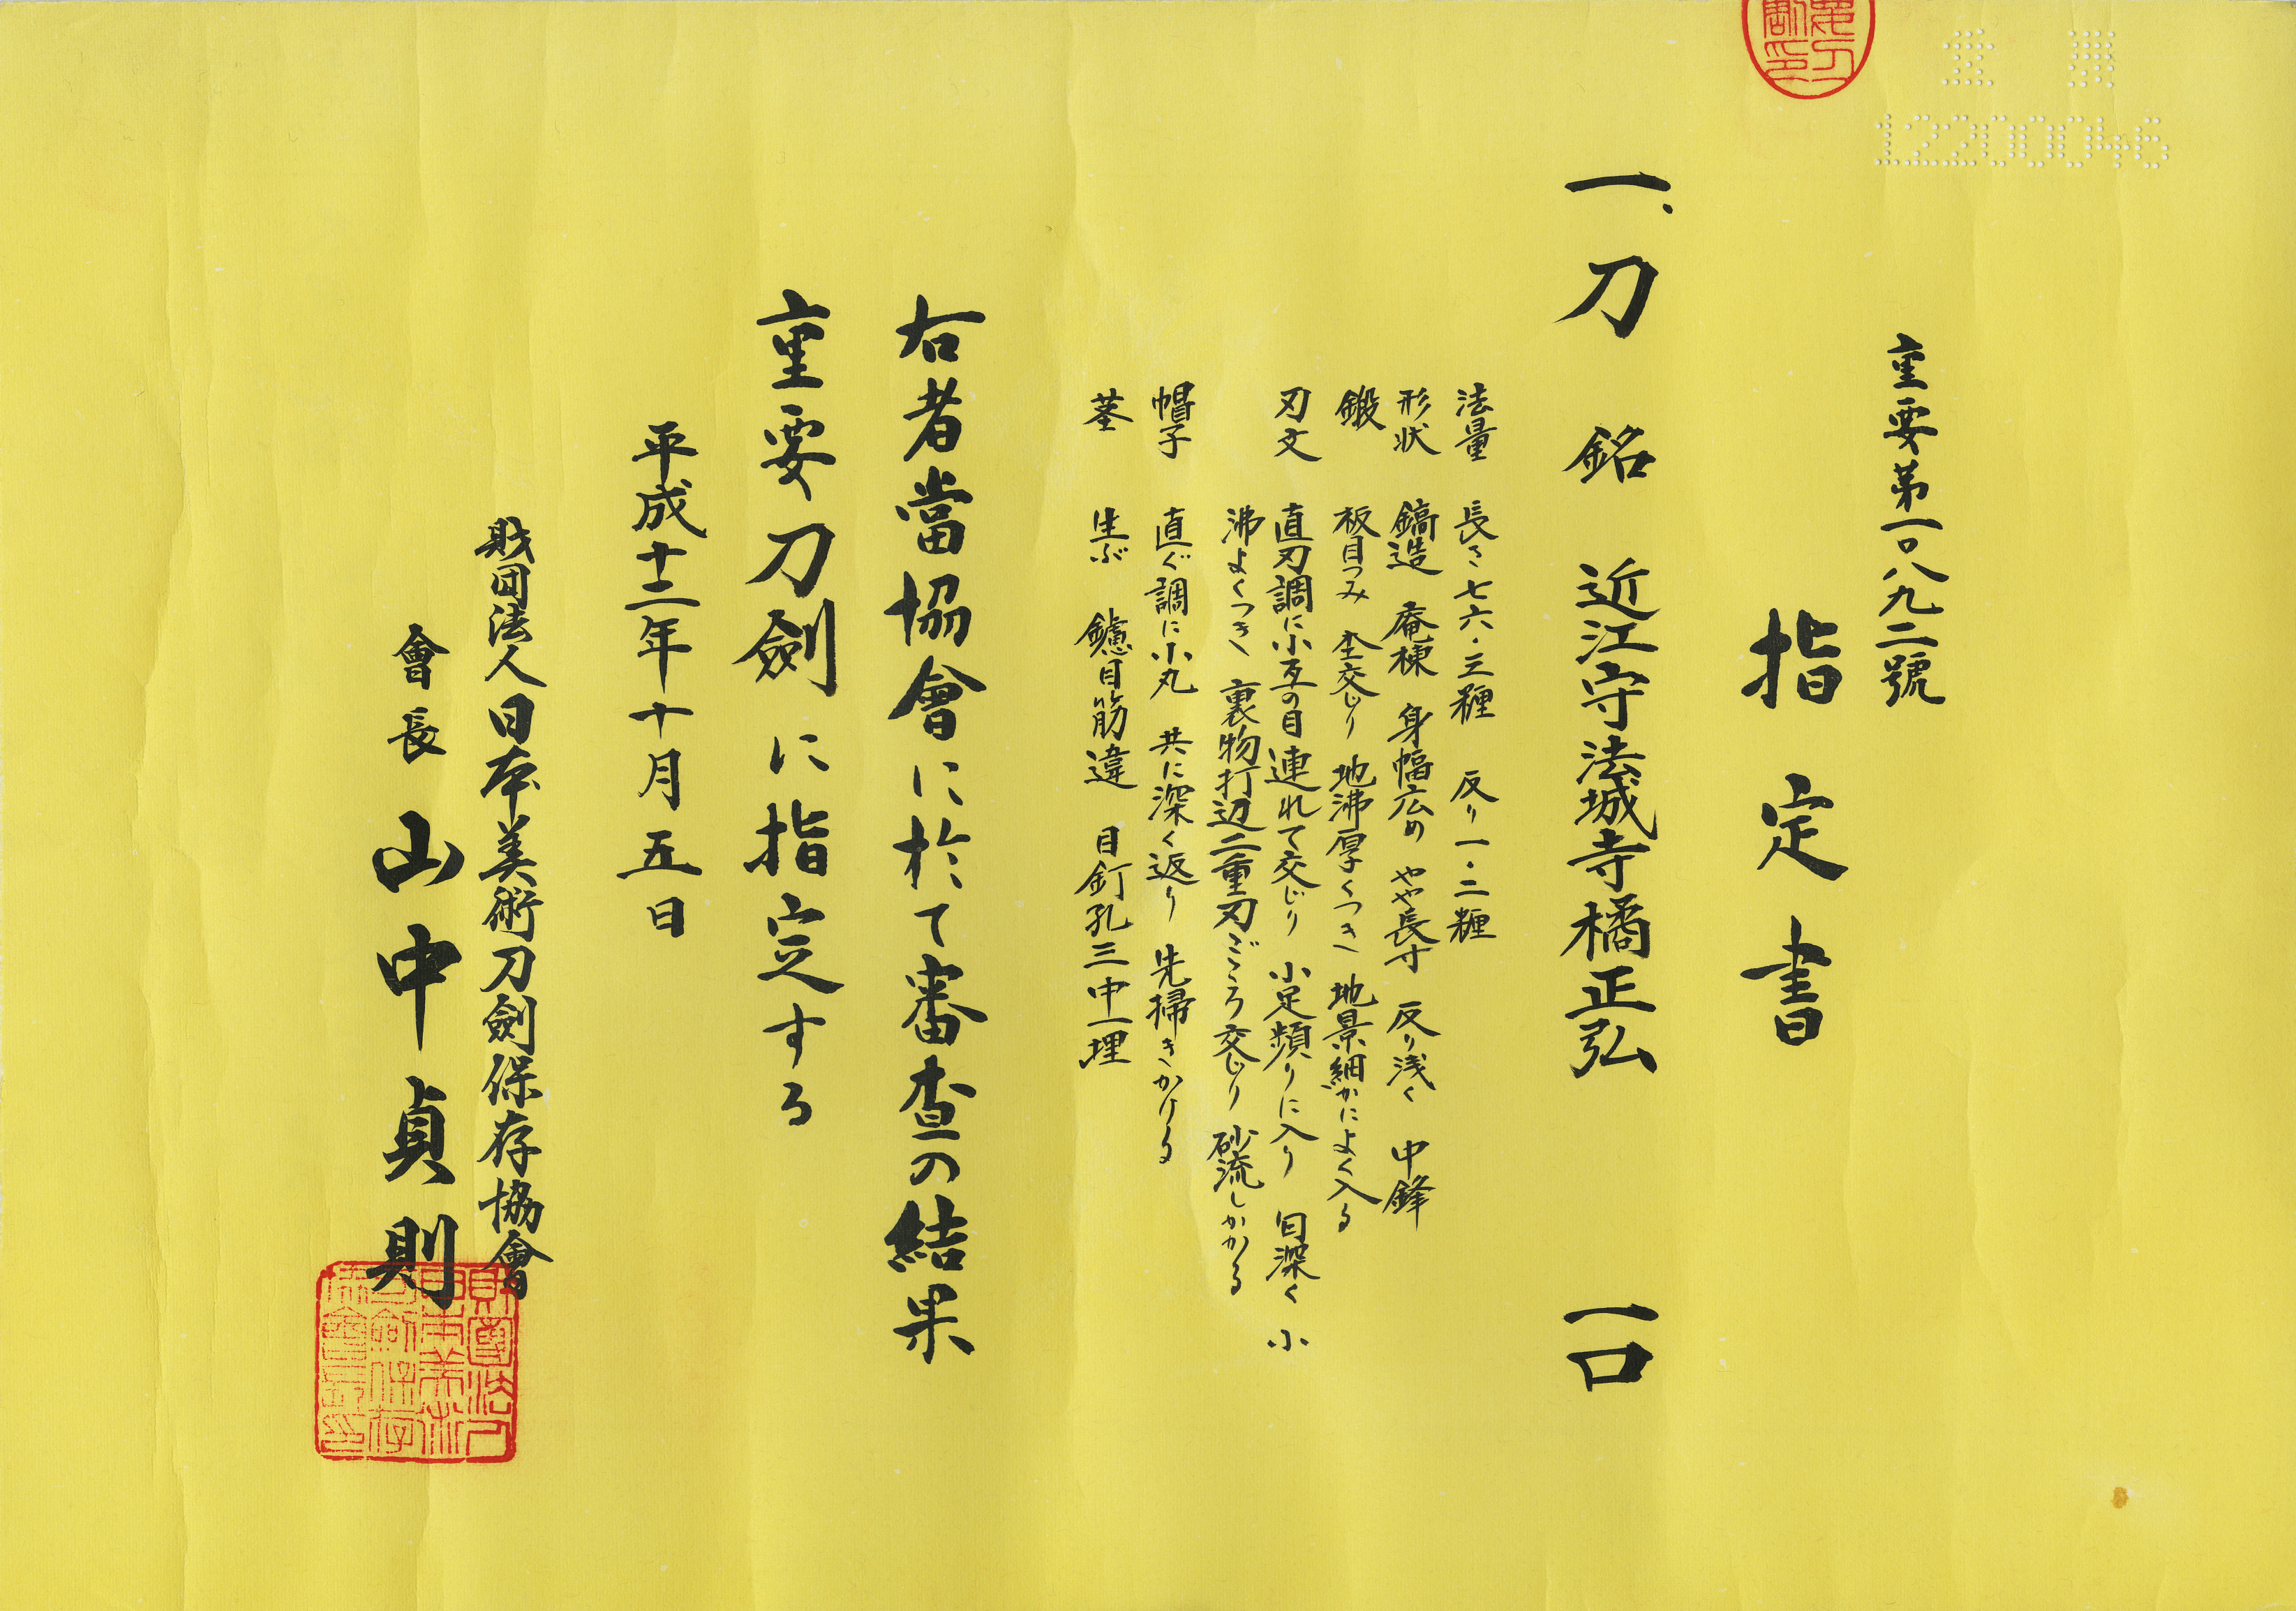 重要第一〇八九二號
指定書
一、刀 銘 近江守法城寺橘正弘 一口
法量 長さ七六・三糎 反り一・二糎
形状 鎬造 庵棟 身幅広め やや長寸 反り浅く 中鋒
鍛 板目つみ 杢交じり 地沸厚くつき 地景細かによく入る
刃文 直刃調に小互の目連れて交じり 小足頻りに入り 匂深く 小
沸よくつき 裏物打辺二重刃ごころ交じり 砂流しかかる
帽子 直ぐ調に小丸 共に深く返り 先掃きかける
茎 生ぶ 鑢目筋違 目釘孔三中一埋
右者當協會に於て審査の結果
重要刀劍に指定する
平成十二年十月五日
財団法人日本美術刀劍保存協會
會長 山中貞則
12200046